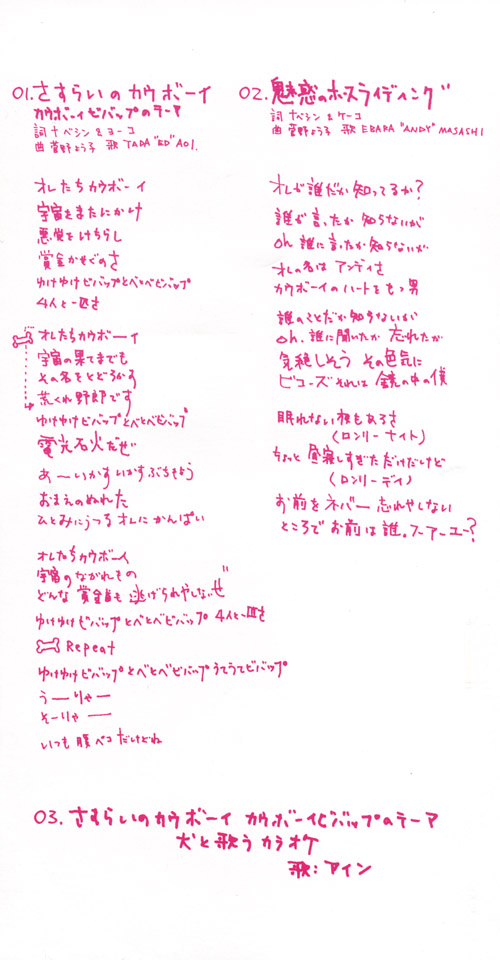 01. さすらいのカウボーイ
カウボーイビバップのテーマ
詞 ナベシン & ヨーコ
曲 菅野よう子 歌 TADA "ED" AOI.
オレたちカウボーイ
宇宙をまたにかけ
悪党をけちらし
賞金かせぐのさ
ゆけゆけビバップとべとべビバップ
4人と一匹さ
オレたちカウボーイ
宇宙の果てまでも
その名をとどろかす
荒くれ野郎です
ゆけゆけビバップとべとべビバップ
電光石火だぜ
あーいかすいかすぶちきよう
おまえのぬれた
ひとみにうつるオレにかんぱい
オレたちカウボーイ
宇宙のながれもの
どんな賞金首も逃げられやしないぜ
ゆけゆけビバップとべとべビバップ 4人と一匹さ
Repeat
ゆけゆけビバップとべとべビバップうてうてビバップ
うーりゃー
そーりゃー
いつも腹ペコだけどね
02. 魅惑のホースライディング
詞 ナベシン & ケーコ
曲 菅野よう子 歌 EBARA "ANDY" MASASHI
オレが誰だか知ってるか?
誰が言ったか知らないが
oh 誰に言ったか知らないが
オレの名はアンディさ
カウボーイのハートをもつ男
誰のことだか知らないが
oh. 誰に聞いたか忘れたが
気絶しそう その色気に
ビコーズそれは 鏡の中の僕
眠れない夜もあるさ
(ロンリーナイト)
ちょっと昼寝しすぎただけだけど
(ロンリーデイ)
お前をネバー忘れやしない
ところでお前は誰。フーアーユー?
03. さすらいのカウボーイ カウボーイビバップのテーマ
犬と歌うカラオケ
歌: アイン